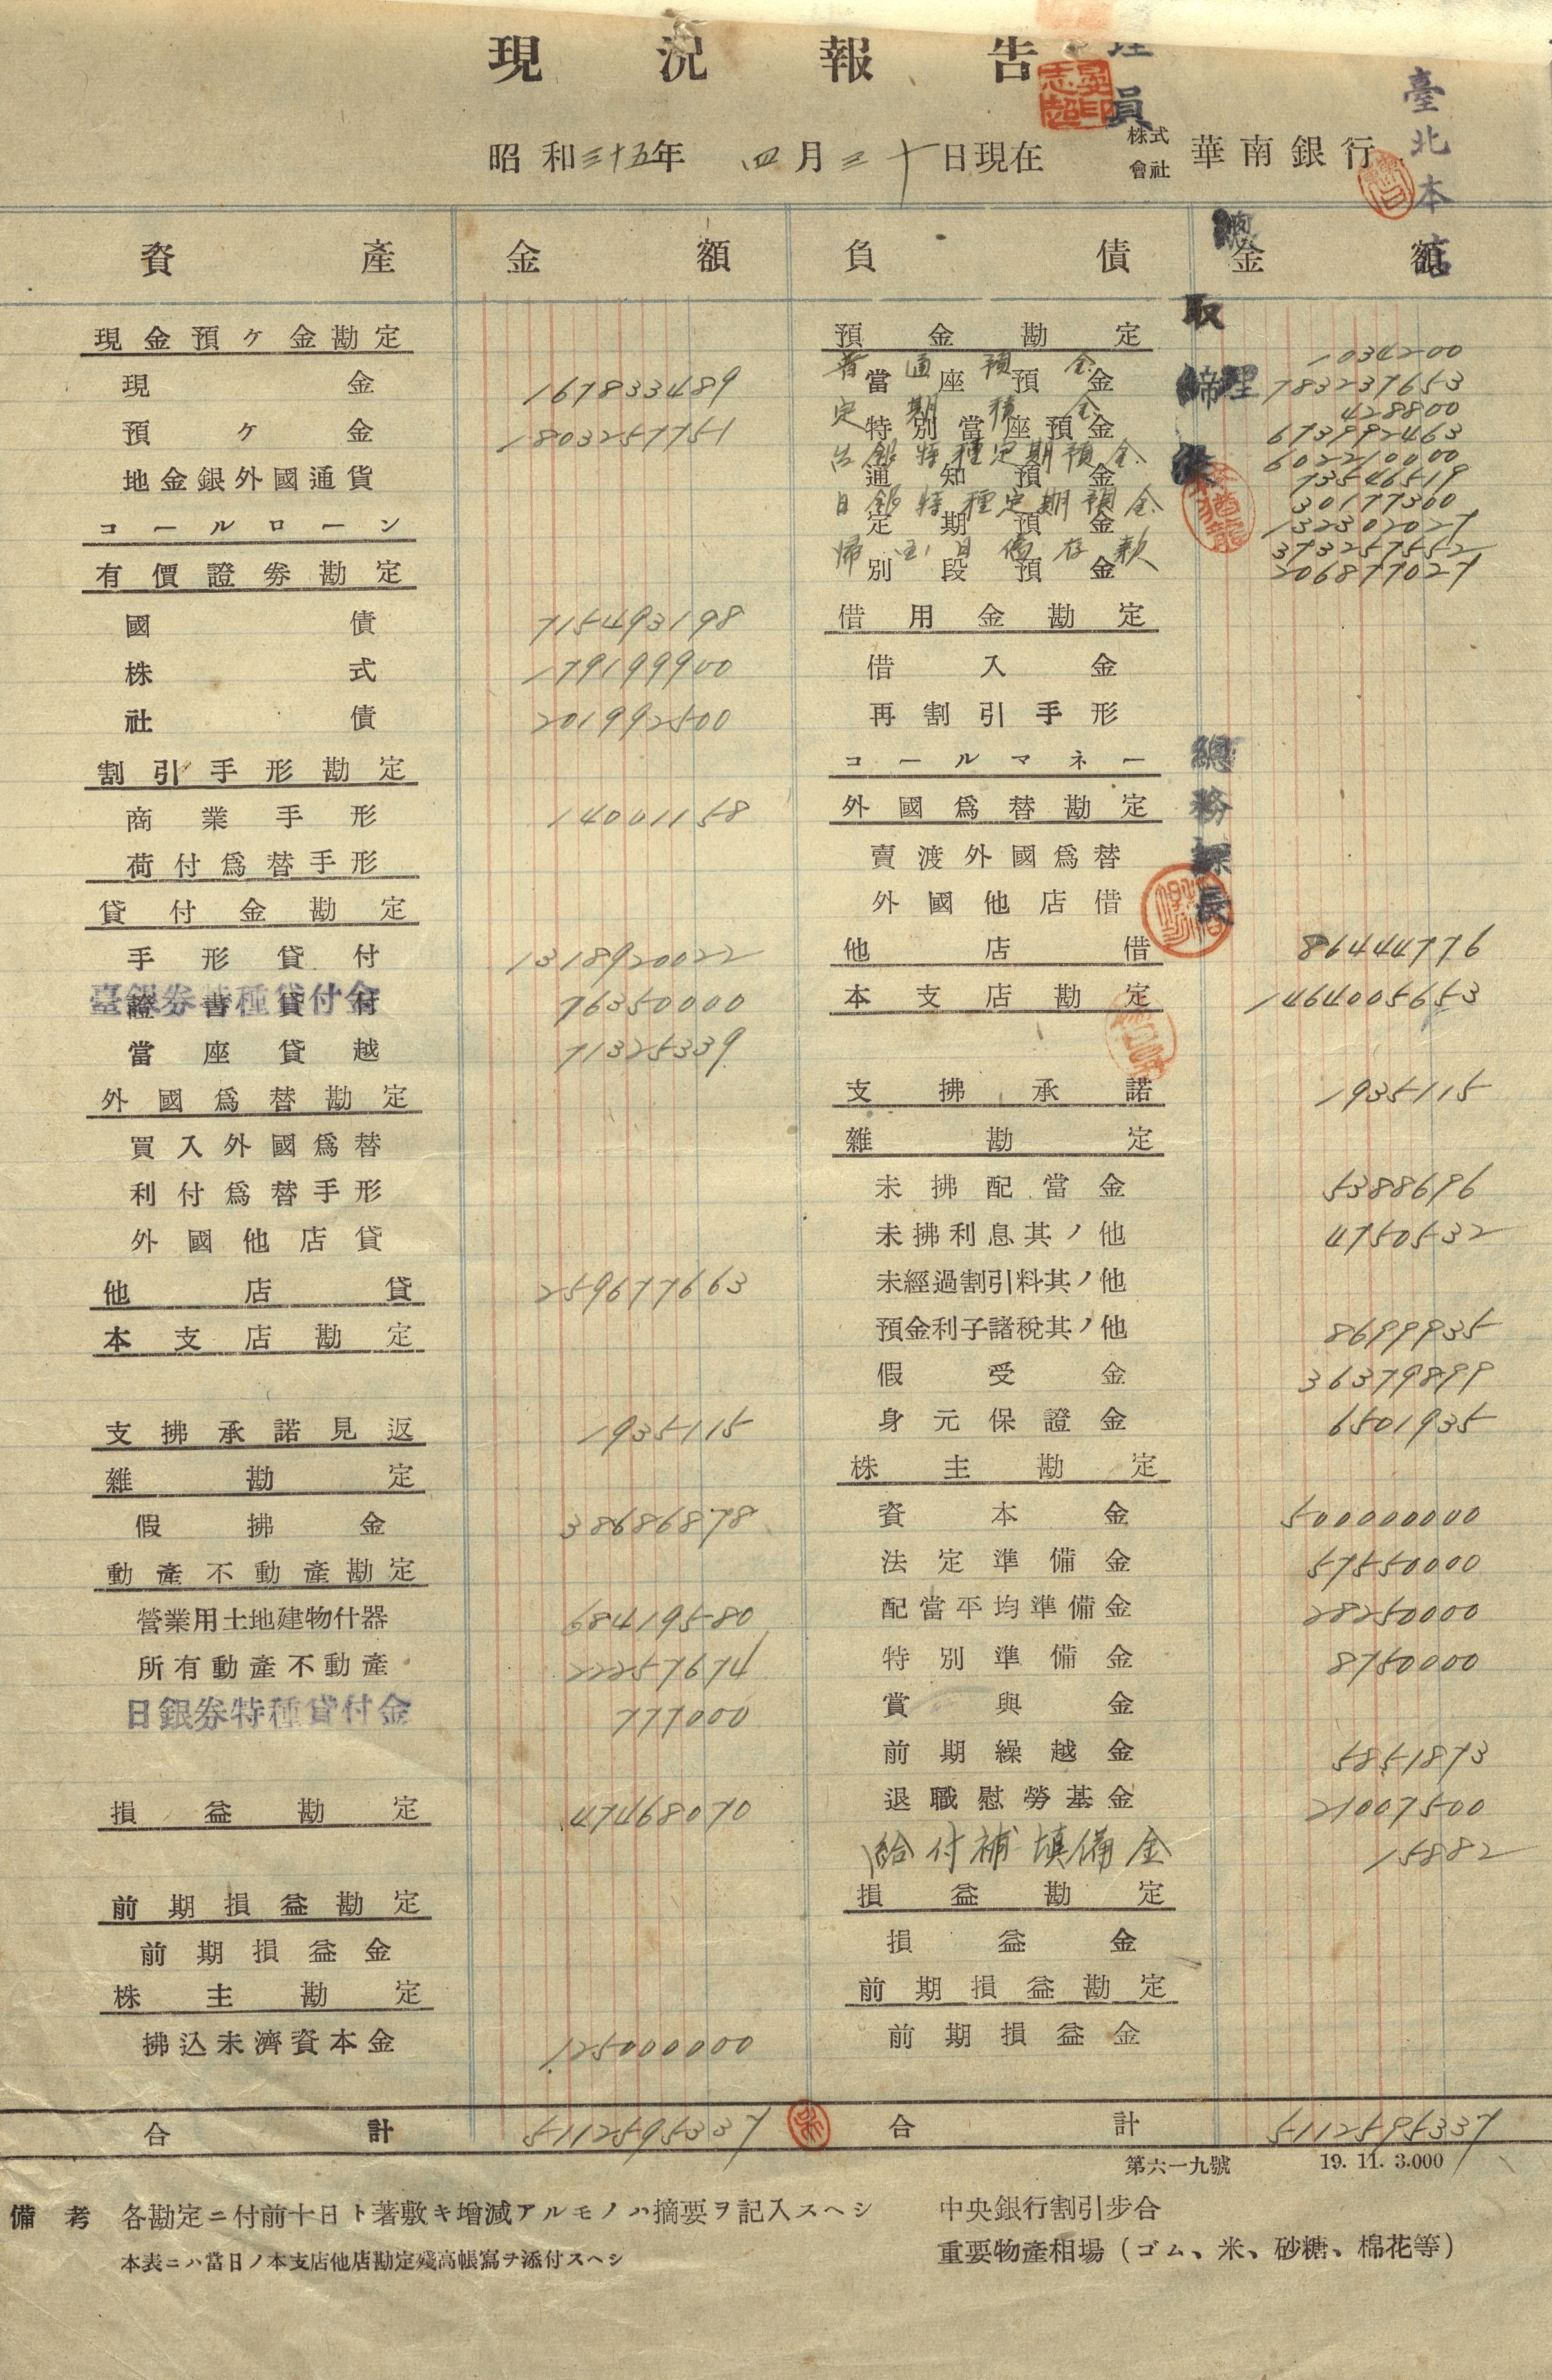 現況報告
理員
臺北本店
昭和三十五年 四月三十日現在
株式會社 華南銀行
資產 金額 負債 金額
現金預ケ金勘定
現金 167833489
預ケ金 1803257751
地金銀外國通貨
コールローン
有價證券勘定
國債 715493198
株式 179199900
社債 201992500
割引手形勘定
商業手形 14001158
荷付爲替手形
貸付金勘定
手形貸付 1318920022
臺銀券特種貸付金
證書貸付 76350000
當座貸越 71325339
外國爲替勘定
買入外國爲替
利付爲替手形
外國他店貸
他店貸 259677663
本支店勘定
支拂承諾見返 1935115
雜勘定
假拂金 38686878
動產不動產勘定
營業用土地建物什器 68419580
所有動產不動產 22257674
日銀券特種貸付金 777000
損益勘定 47468070
前期損益勘定
前期損益金
株主勘定
拂込未濟資本金 125000000
合計 5112595337
預金勘定
普通預金 1034200
當座預金 783237653
定期積金 428800
特別當座預金 673992463
台銀特種定期預金 602210000
通知預金 73546519
日銀特種定期預金 30177300
定期預金 132302027
別段預金 206877027
借用金勘定
借入金
再割引手形
コールマネー
外國爲替勘定
賣渡外國爲替
外國他店借
他店借 86444776
本支店勘定 1464005653
支拂承諾 1935115
雜勘定
未拂配當金 5388696
未拂利息其ノ他 4750532
未經過割引料其ノ他
預金利子諸稅其ノ他 8699935
假受金 36379899
身元保證金 6501935
株主勘定
資本金 500000000
法定準備金 57550000
配當平均準備金 28250000
特別準備金 8750000
賞與金
前期繰越金 5851873
退職慰勞基金 21007500
給付補填備金 15882
損益勘定
損益金
前期損益勘定
前期損益金
合計 5112595337
總務課長
第六一九號 19. 11. 3.000
備考 各勘定ニ付前十日ト著敷キ增減アルモノハ摘要ヲ記入スヘシ
本表ニハ當日ノ本支店他店勘定殘高帳寫ヲ添付スヘシ
中央銀行割引步合
重要物產相場（ゴム、米、砂糖、棉花等）